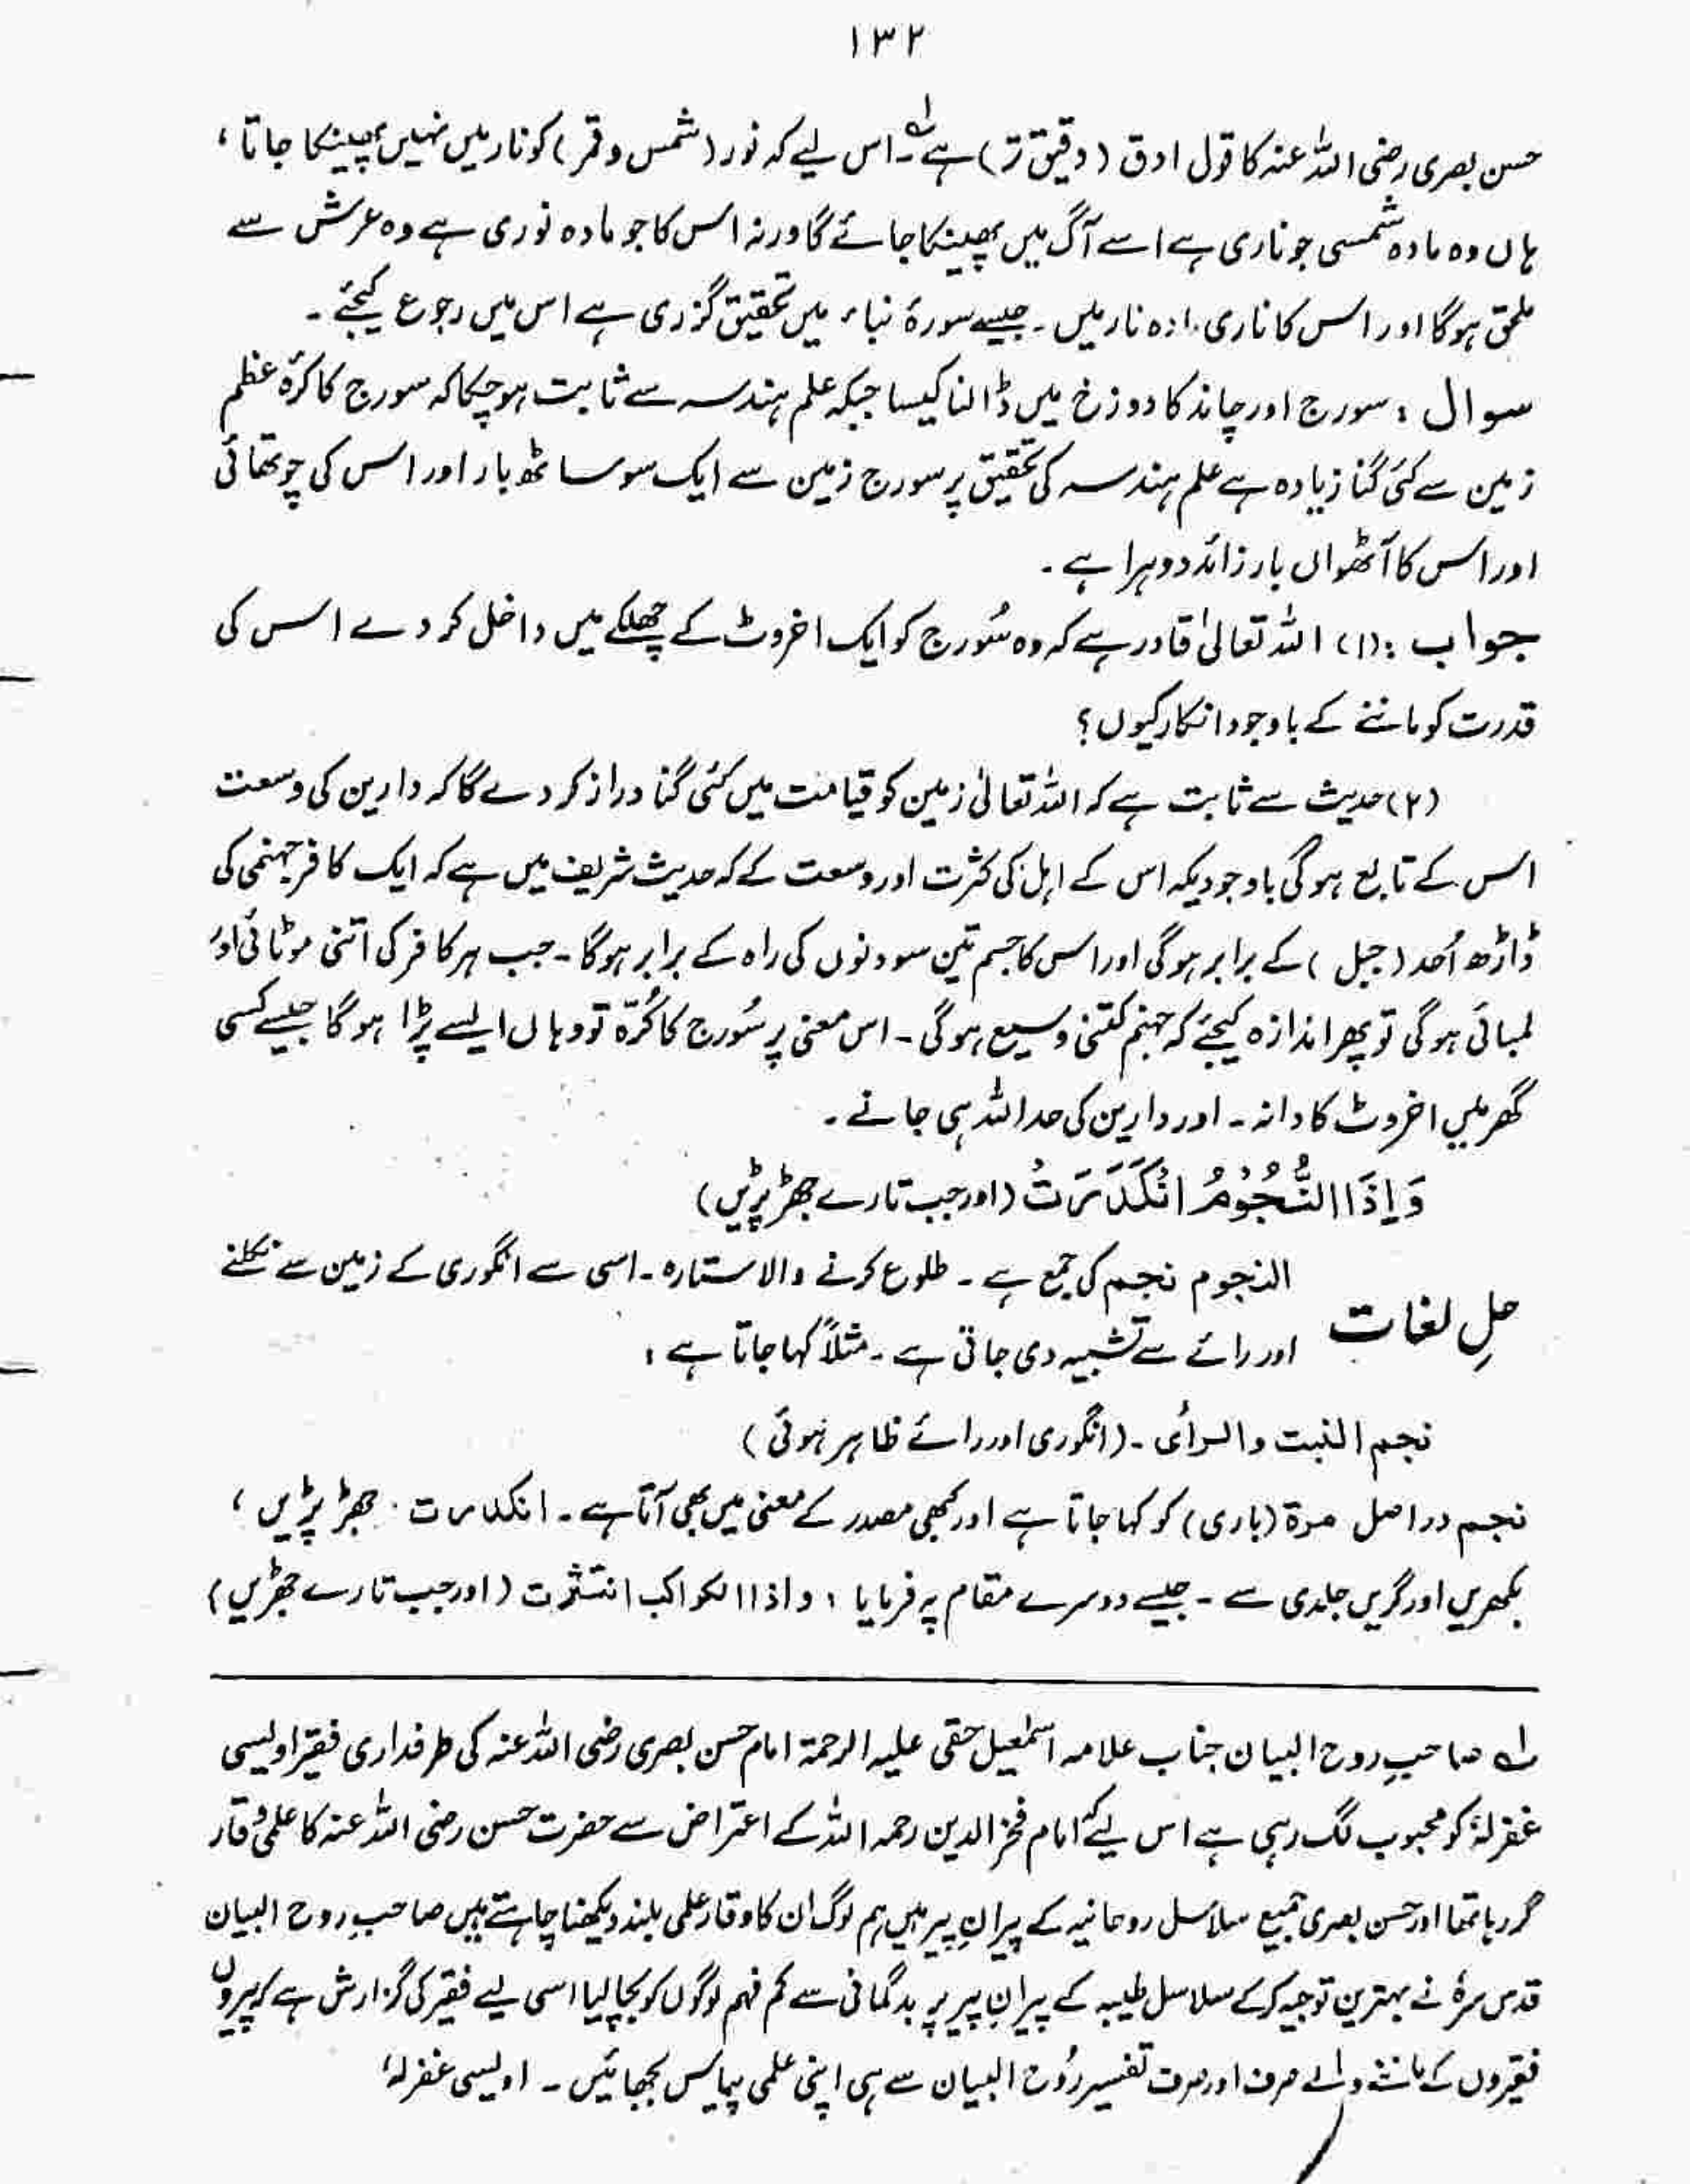 ۱۳۲
حسن بصری رضی اللہ عنہ کا قول ادق (دقیق تر) ہے لہ۔ اس لیے کہ نور (شمس و قمر) کو نار میں نہیں پھینکا جاتا ،
ہاں وہ مادہ شمسی جو ناری ہے اسے آگ میں پھینکا جائے گا ورنہ اس کا جو مادہ نوری ہے وہ عرش سے
ملحق ہوگا اور اس کا ناری مادہ نار میں ۔ جیسے سورۂ نباء میں تحقیق گزری ہے اس میں رجوع کیجئے ۔
سوال : سورج اور چاند کا دوزخ میں ڈالنا کیسا جبکہ علم ہندسہ سے ثابت ہوچکا کہ سورج کا کرۂ عظم
زمین سے کئی گنا زیادہ ہے علم ہندسہ کی تحقیق پر سورج زمین سے ایک سو ساٹھ بار اور اس کی چوتھائی
اور اس کا آٹھواں بار زائد دوہرا ہے ۔
جواب : (۱) اللہ تعالیٰ قادر ہے کہ وہ سُورج کو ایک اخروٹ کے چھلکے میں داخل کر دے اس کی
قدرت کو ماننے کے باوجود انکار کیوں ؟
(۲) حدیث سے ثابت ہے کہ اللہ تعالیٰ زمین کو قیامت میں کئی گنا دراز کر دے گا کہ دارین کی وسعت
اس کے تابع ہوگی باوجودیکہ اس کے اہل کی کثرت اور وسعت کے کہ حدیث شریف میں ہے کہ ایک کافر جہنمی کی
ڈاڑھ اُحد (جبل) کے برابر ہوگی اور اس کا جسم تین سو دنوں کی راہ کے برابر ہوگا ۔ جب ہر کافر کی اتنی موٹائی اور
لمبائی ہوگی تو پھر اندازہ کیجئے کہ جہنم کتنی وسیع ہوگی ۔ اس معنی پر سُورج کا کُرّہ تو وہاں ایسے پڑا ہوگا جیسے کسی
گھر میں اخروٹ کا دانہ ۔ اور دارین کی حد اللہ ہی جانے ۔
وَاِذَا النُّجُوْمُ انْكَدَرَتْ (اور جب تارے جھڑ پڑیں)
النجوم نجم کی جمع ہے ۔ طلوع کرنے والا ستارہ ۔ اسی سے انگوری کے زمین سے نکلنے
حلِ لغات
اور رائے سے تشبیہ دی جاتی ہے ۔ مثلاً کہا جاتا ہے :
نجم النبت والرأی ۔ (انگوری اور رائے ظاہر ہوئی)
نجم دراصل مرۃ (باری) کو کہا جاتا ہے اور کبھی مصدر کے معنی میں بھی آتا ہے ۔ انکدرت . جھڑ پڑیں ،
بکھریں اور گریں جلدی سے ۔ جیسے دوسرے مقام پہ فرمایا : واذا الکواکب انتثرت (اور جب تارے جھڑیں)
لہ صاحبِ روح البیان جناب علامہ اسمٰعیل حقی علیہ الرحمۃ امام حسن بصری رضی اللہ عنہ کی طرفداری فقیر اویسی
غفرلہٗ کو محبوب لگ رہی ہے اس لیے کہ امام فخر الدین رحمہ اللہ کے اعتراض سے حضرت حسن رضی اللہ عنہ کا علمی وقار
گر رہا تھا اور حسن بصری جمیع سلاسل روحانیہ کے پیرانِ پیر ہیں ہم لوگ ان کا وقار علمی بلند دیکھنا چاہتے ہیں صاحبِ روح البیان
قدس سرہٗ نے بہترین توجیہ کرکے سلاسل طیبہ کے پیرانِ پیر پر بدگمانی سے کم فہم لوگوں کو بچا لیا اسی لیے فقیر کی گزارش ہے کہ پیروں
فقیروں کے ماننے والے صرف اور صرف تفسیر رُوح البیان سے ہی اپنی علمی پیاس بجھائیں ۔ اویسی غفرلہٗ